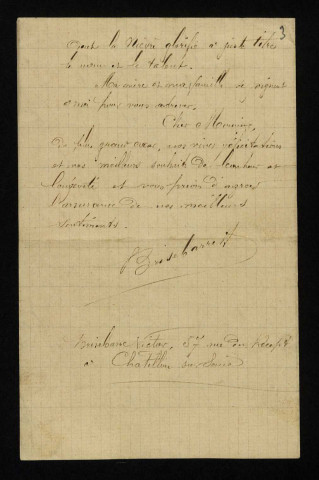 3
dont la Nièvre glorifie à juste titre
le nom et le talent.
Ma mère et ma famille se joignent
à moi pour vous adresser.
Cher Monsieur,
de plus grand cœur, nos vives félicitations
et nos meilleurs souhaits de bonheur et
longévité et vous prions d'agréer
l'assurance de nos meilleurs
sentiments.
Victor, 57 rue du
à Chatillon sur Seine